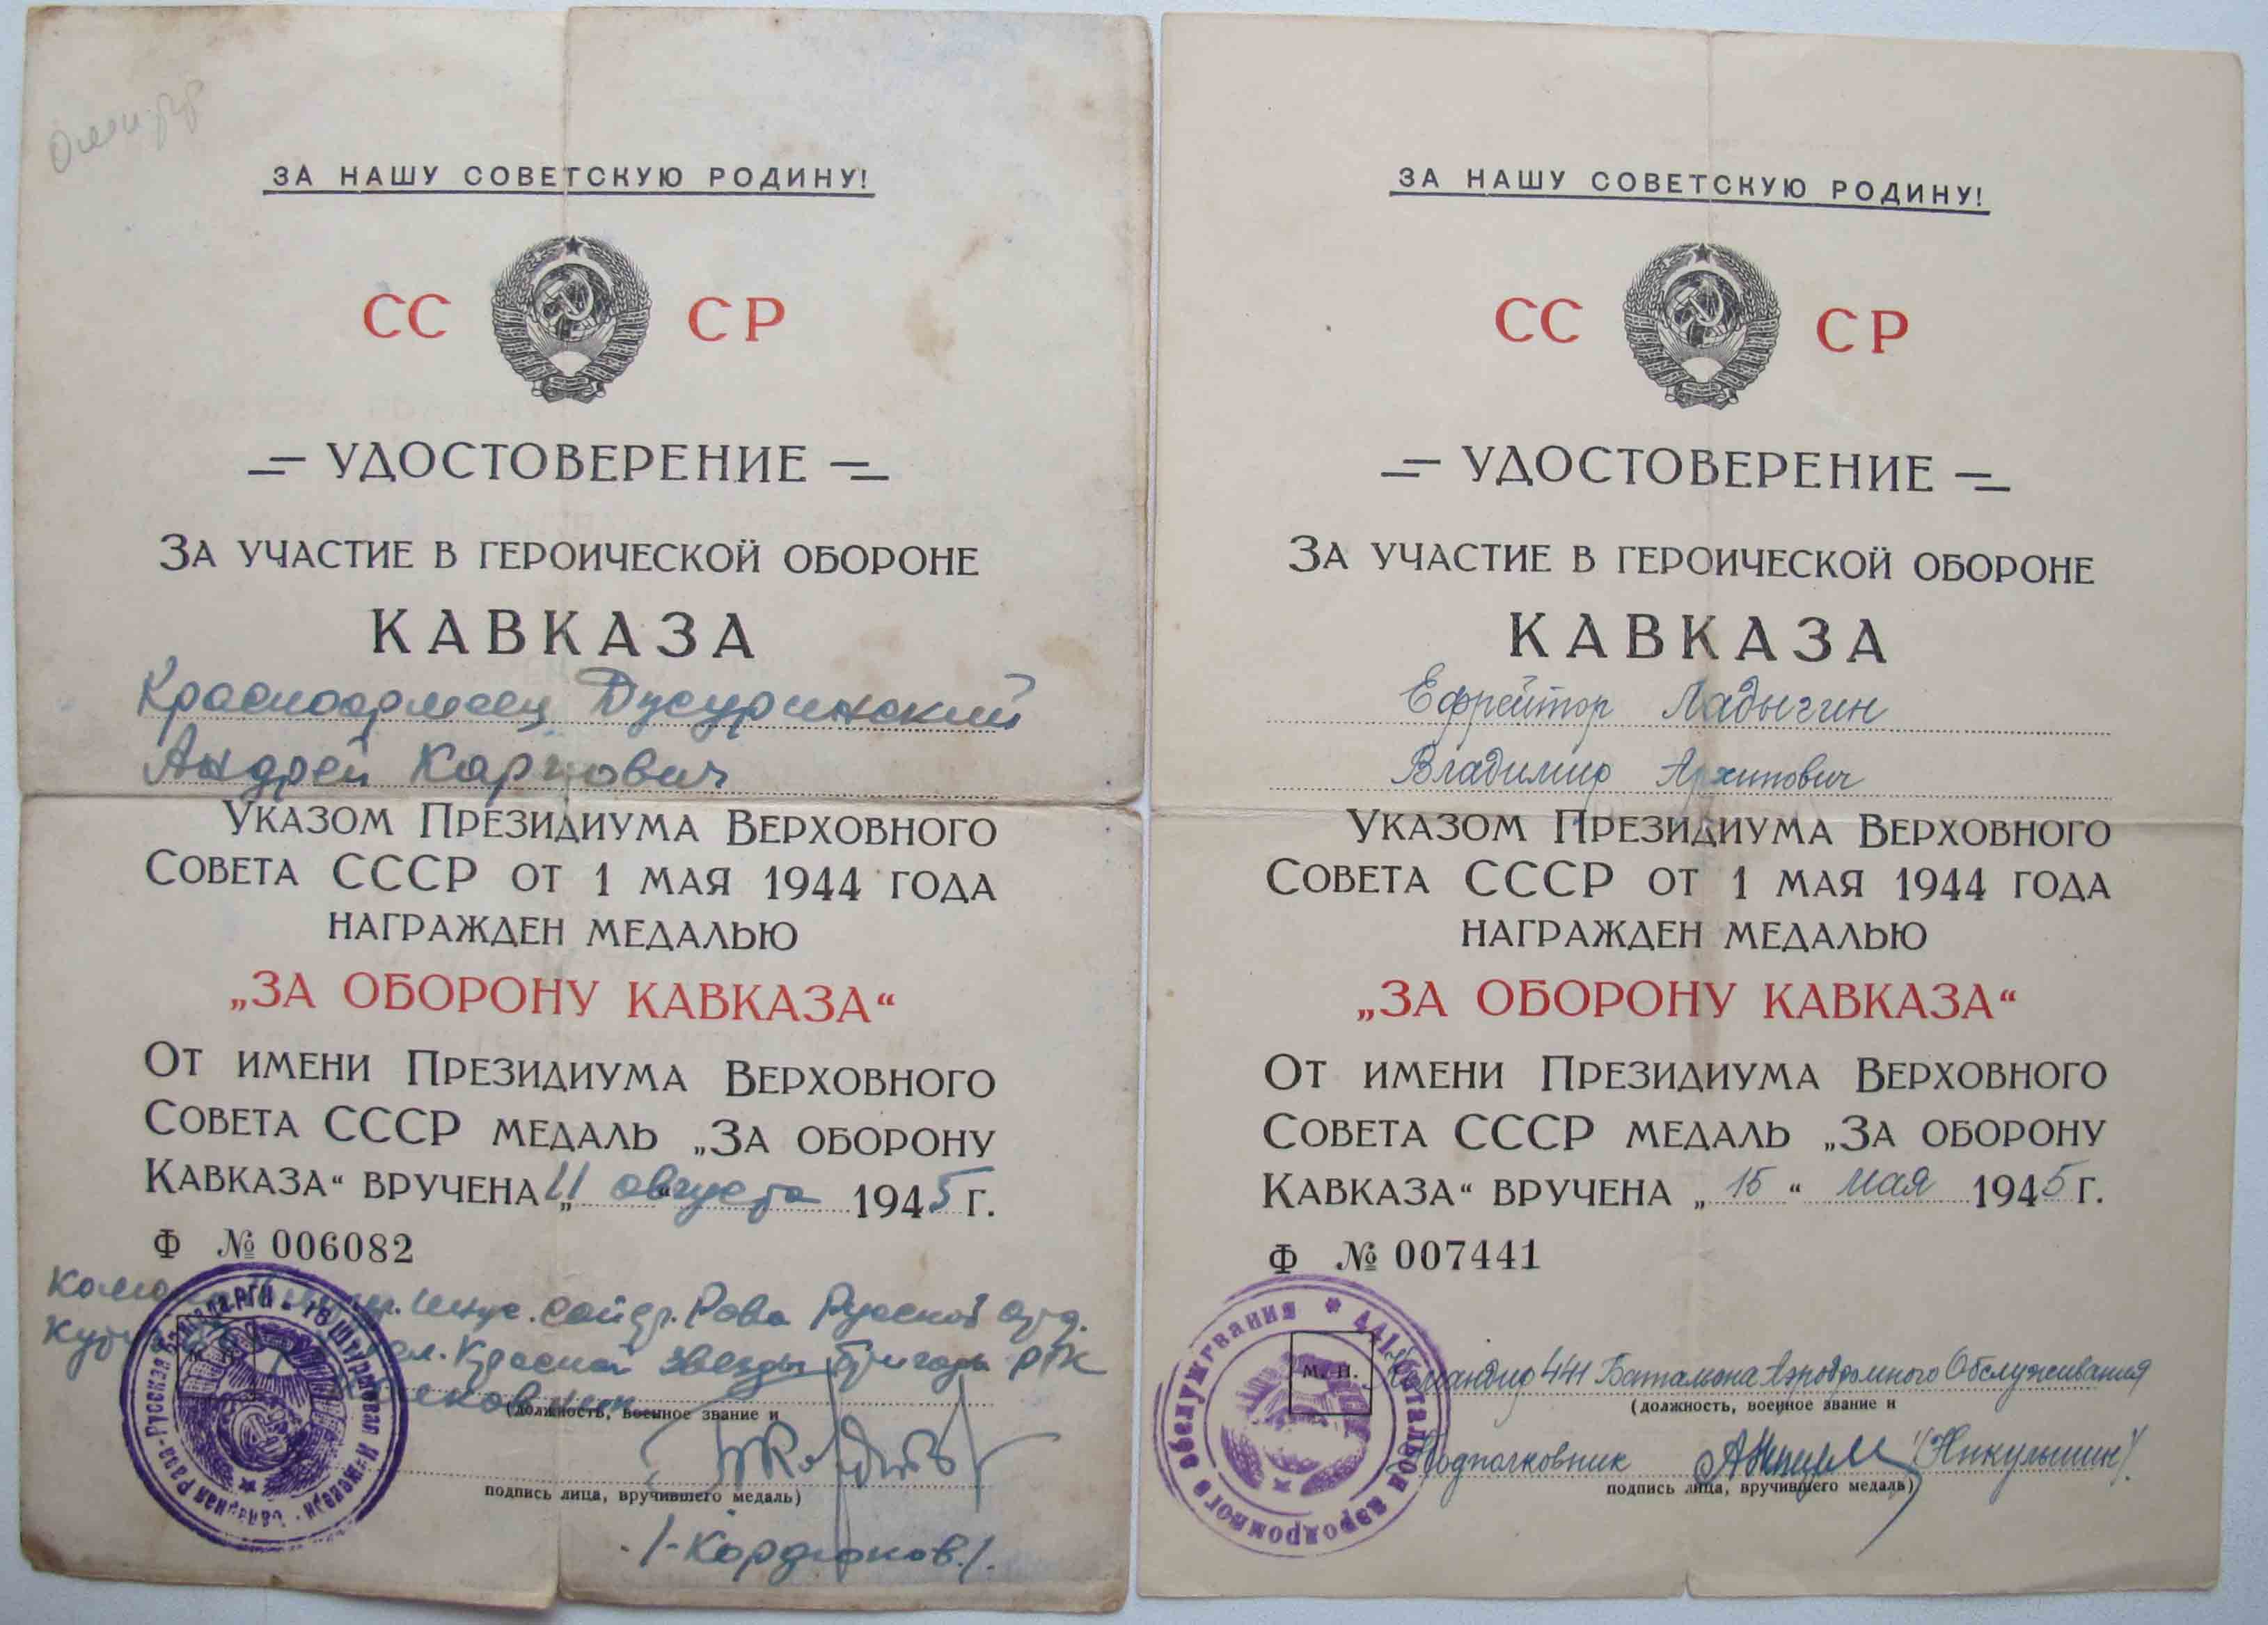 ЗА НАШУ СОВЕТСКУЮ РОДИНУ!
СС СР
УДОСТОВЕРЕНИЕ
ЗА УЧАСТИЕ В ГЕРОИЧЕСКОЙ ОБОРОНЕ
КАВКАЗА
Красноармеец
Андрей Карпович
УКАЗОМ ПРЕЗИДИУМА ВЕРХОВНОГО
СОВЕТА СССР ОТ 1 МАЯ 1944 ГОДА
НАГРАЖДЕН МЕДАЛЬЮ
„ЗА ОБОРОНУ КАВКАЗА“
ОТ ИМЕНИ ПРЕЗИДИУМА ВЕРХОВНОГО
СОВЕТА СССР МЕДАЛЬ „ЗА ОБОРОНУ
КАВКАЗА“ ВРУЧЕНА „11“ августа 1945 г.
Ф № 006082
Рава Русской
Красной Звезды бригады РГК
(должность, военное звание и
подпись лица, вручившего медаль)
/-Кордюков./.
ЗА НАШУ СОВЕТСКУЮ РОДИНУ!
СС СР
УДОСТОВЕРЕНИЕ
ЗА УЧАСТИЕ В ГЕРОИЧЕСКОЙ ОБОРОНЕ
КАВКАЗА
Ефрейтор Ладыгин
Владимир Архипович
УКАЗОМ ПРЕЗИДИУМА ВЕРХОВНОГО
СОВЕТА СССР ОТ 1 МАЯ 1944 ГОДА
НАГРАЖДЕН МЕДАЛЬЮ
„ЗА ОБОРОНУ КАВКАЗА“
ОТ ИМЕНИ ПРЕЗИДИУМА ВЕРХОВНОГО
СОВЕТА СССР МЕДАЛЬ „ЗА ОБОРОНУ
КАВКАЗА“ ВРУЧЕНА „15“ мая 1945 г.
Ф № 007441
441 батальон аэродромного обслуживания
М. П.
Командир 441 Батальона Аэродромного Обслуживания
(должность, военное звание и
Подполковник /Никульшин/
подпись лица, вручившего медаль)